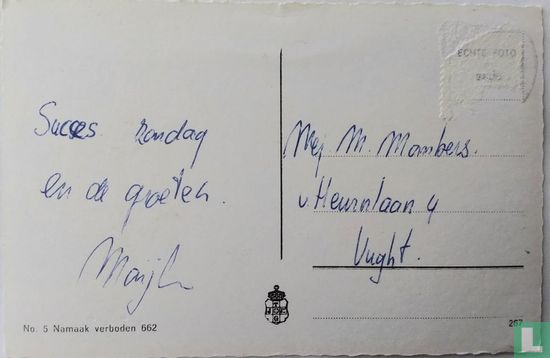 Succes zondag
en de groeten.
ECHTE FOTO
Mej M. Mombers.
v. Heurnlaan 4
Vught.
No. 5 Namaak verboden 662
267
catawiki